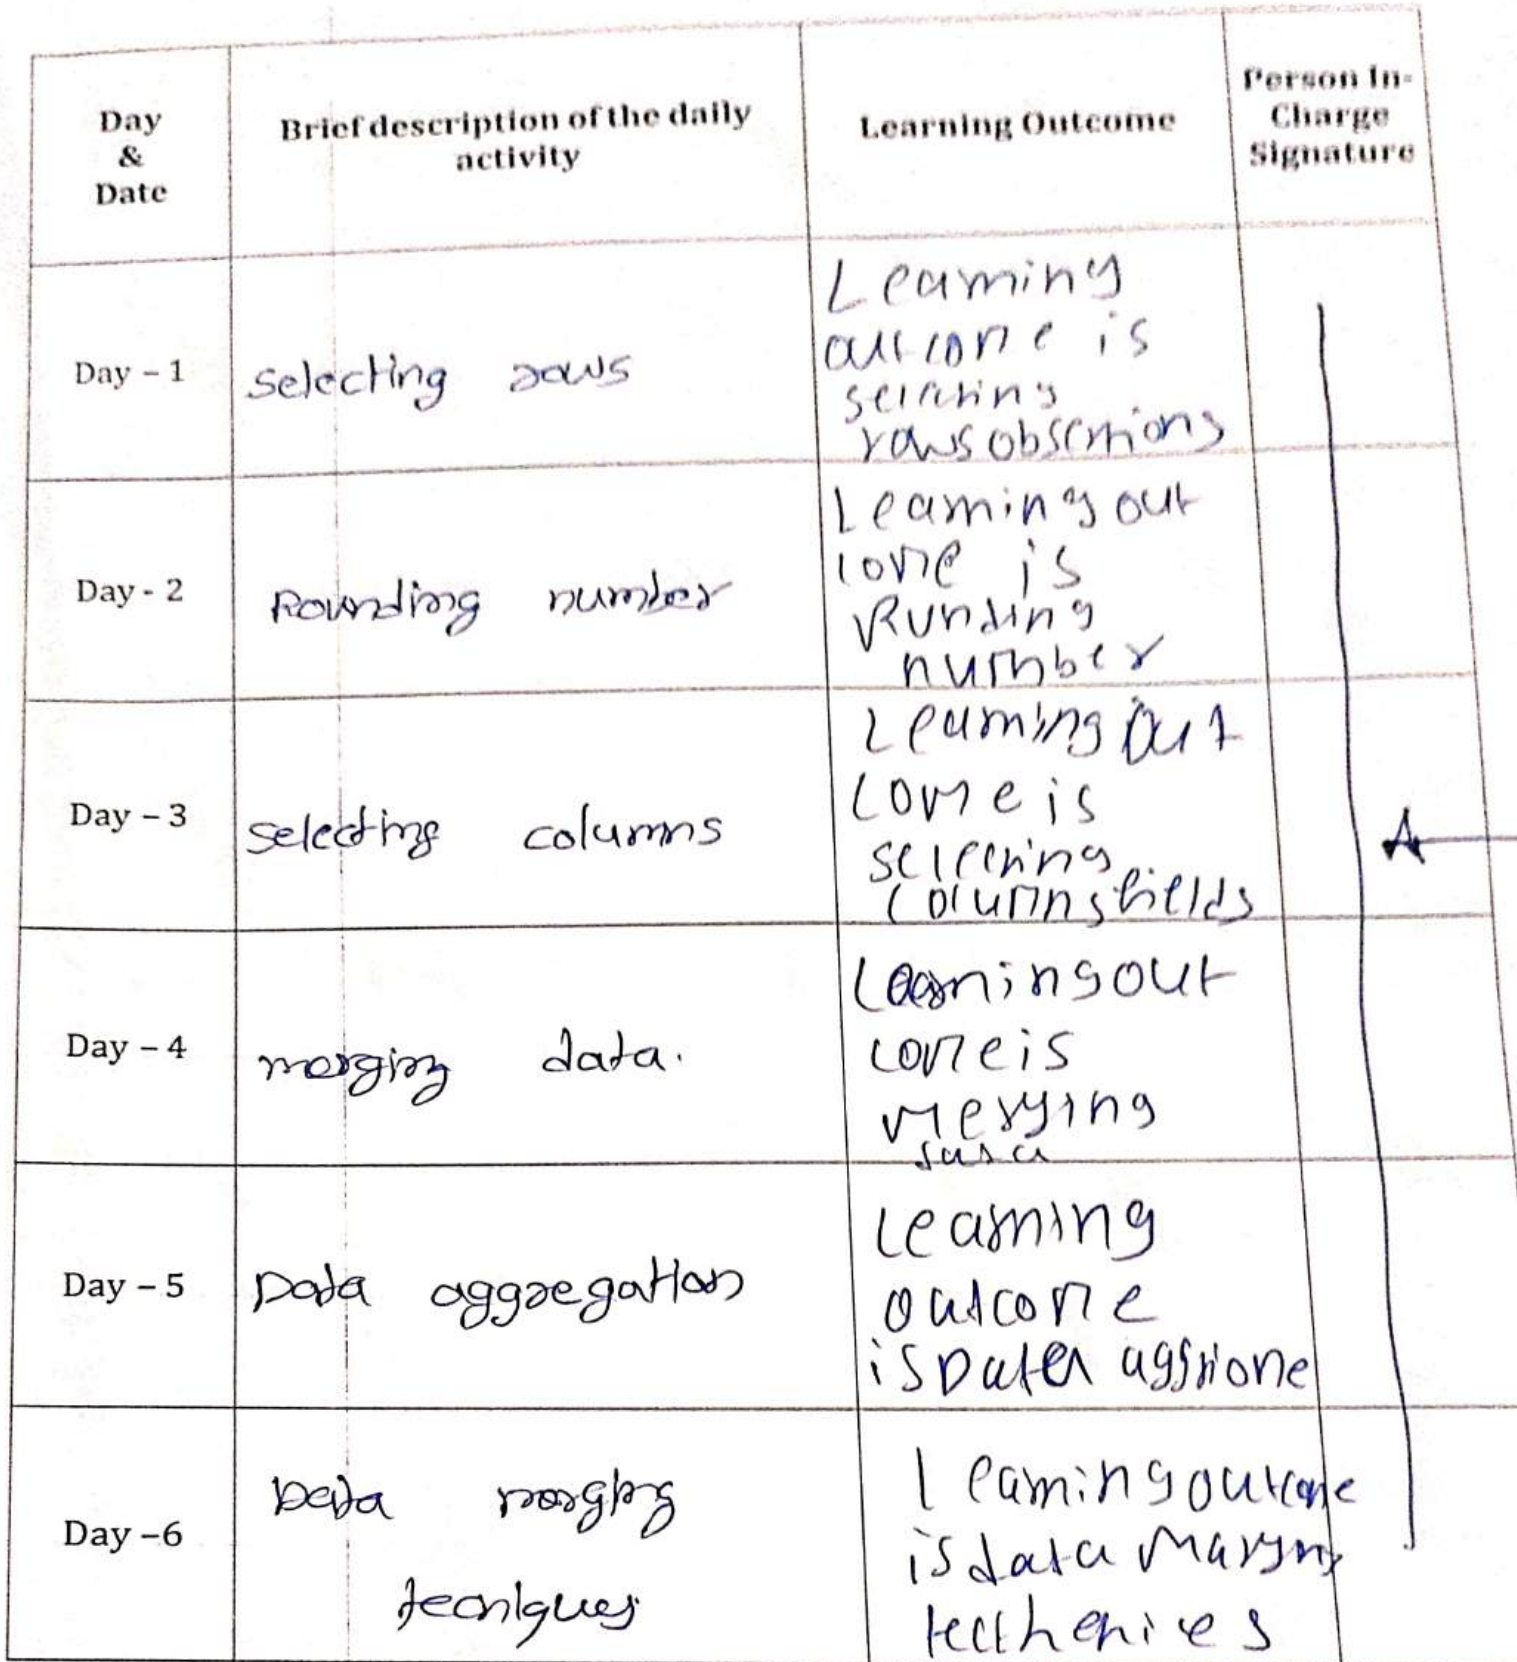 Day
&
Date
Brief description of the daily
activity
Learning Outcome
Person In-
Charge
Signature
Day – 1
selecting rows
Learning
outcome is
selecting
rows obsertions
Day - 2
Rounding number
Learning out
come is
Runding
number
Day – 3
selecting columns
Learning Out
come is
selecting
columns fields
Day – 4
merging data.
Learning out
come is
merging
data
Day – 5
Data aggregation
Learning
outcome
is Data
Day –6
Data merging
tecniques
Learning outcome
is data